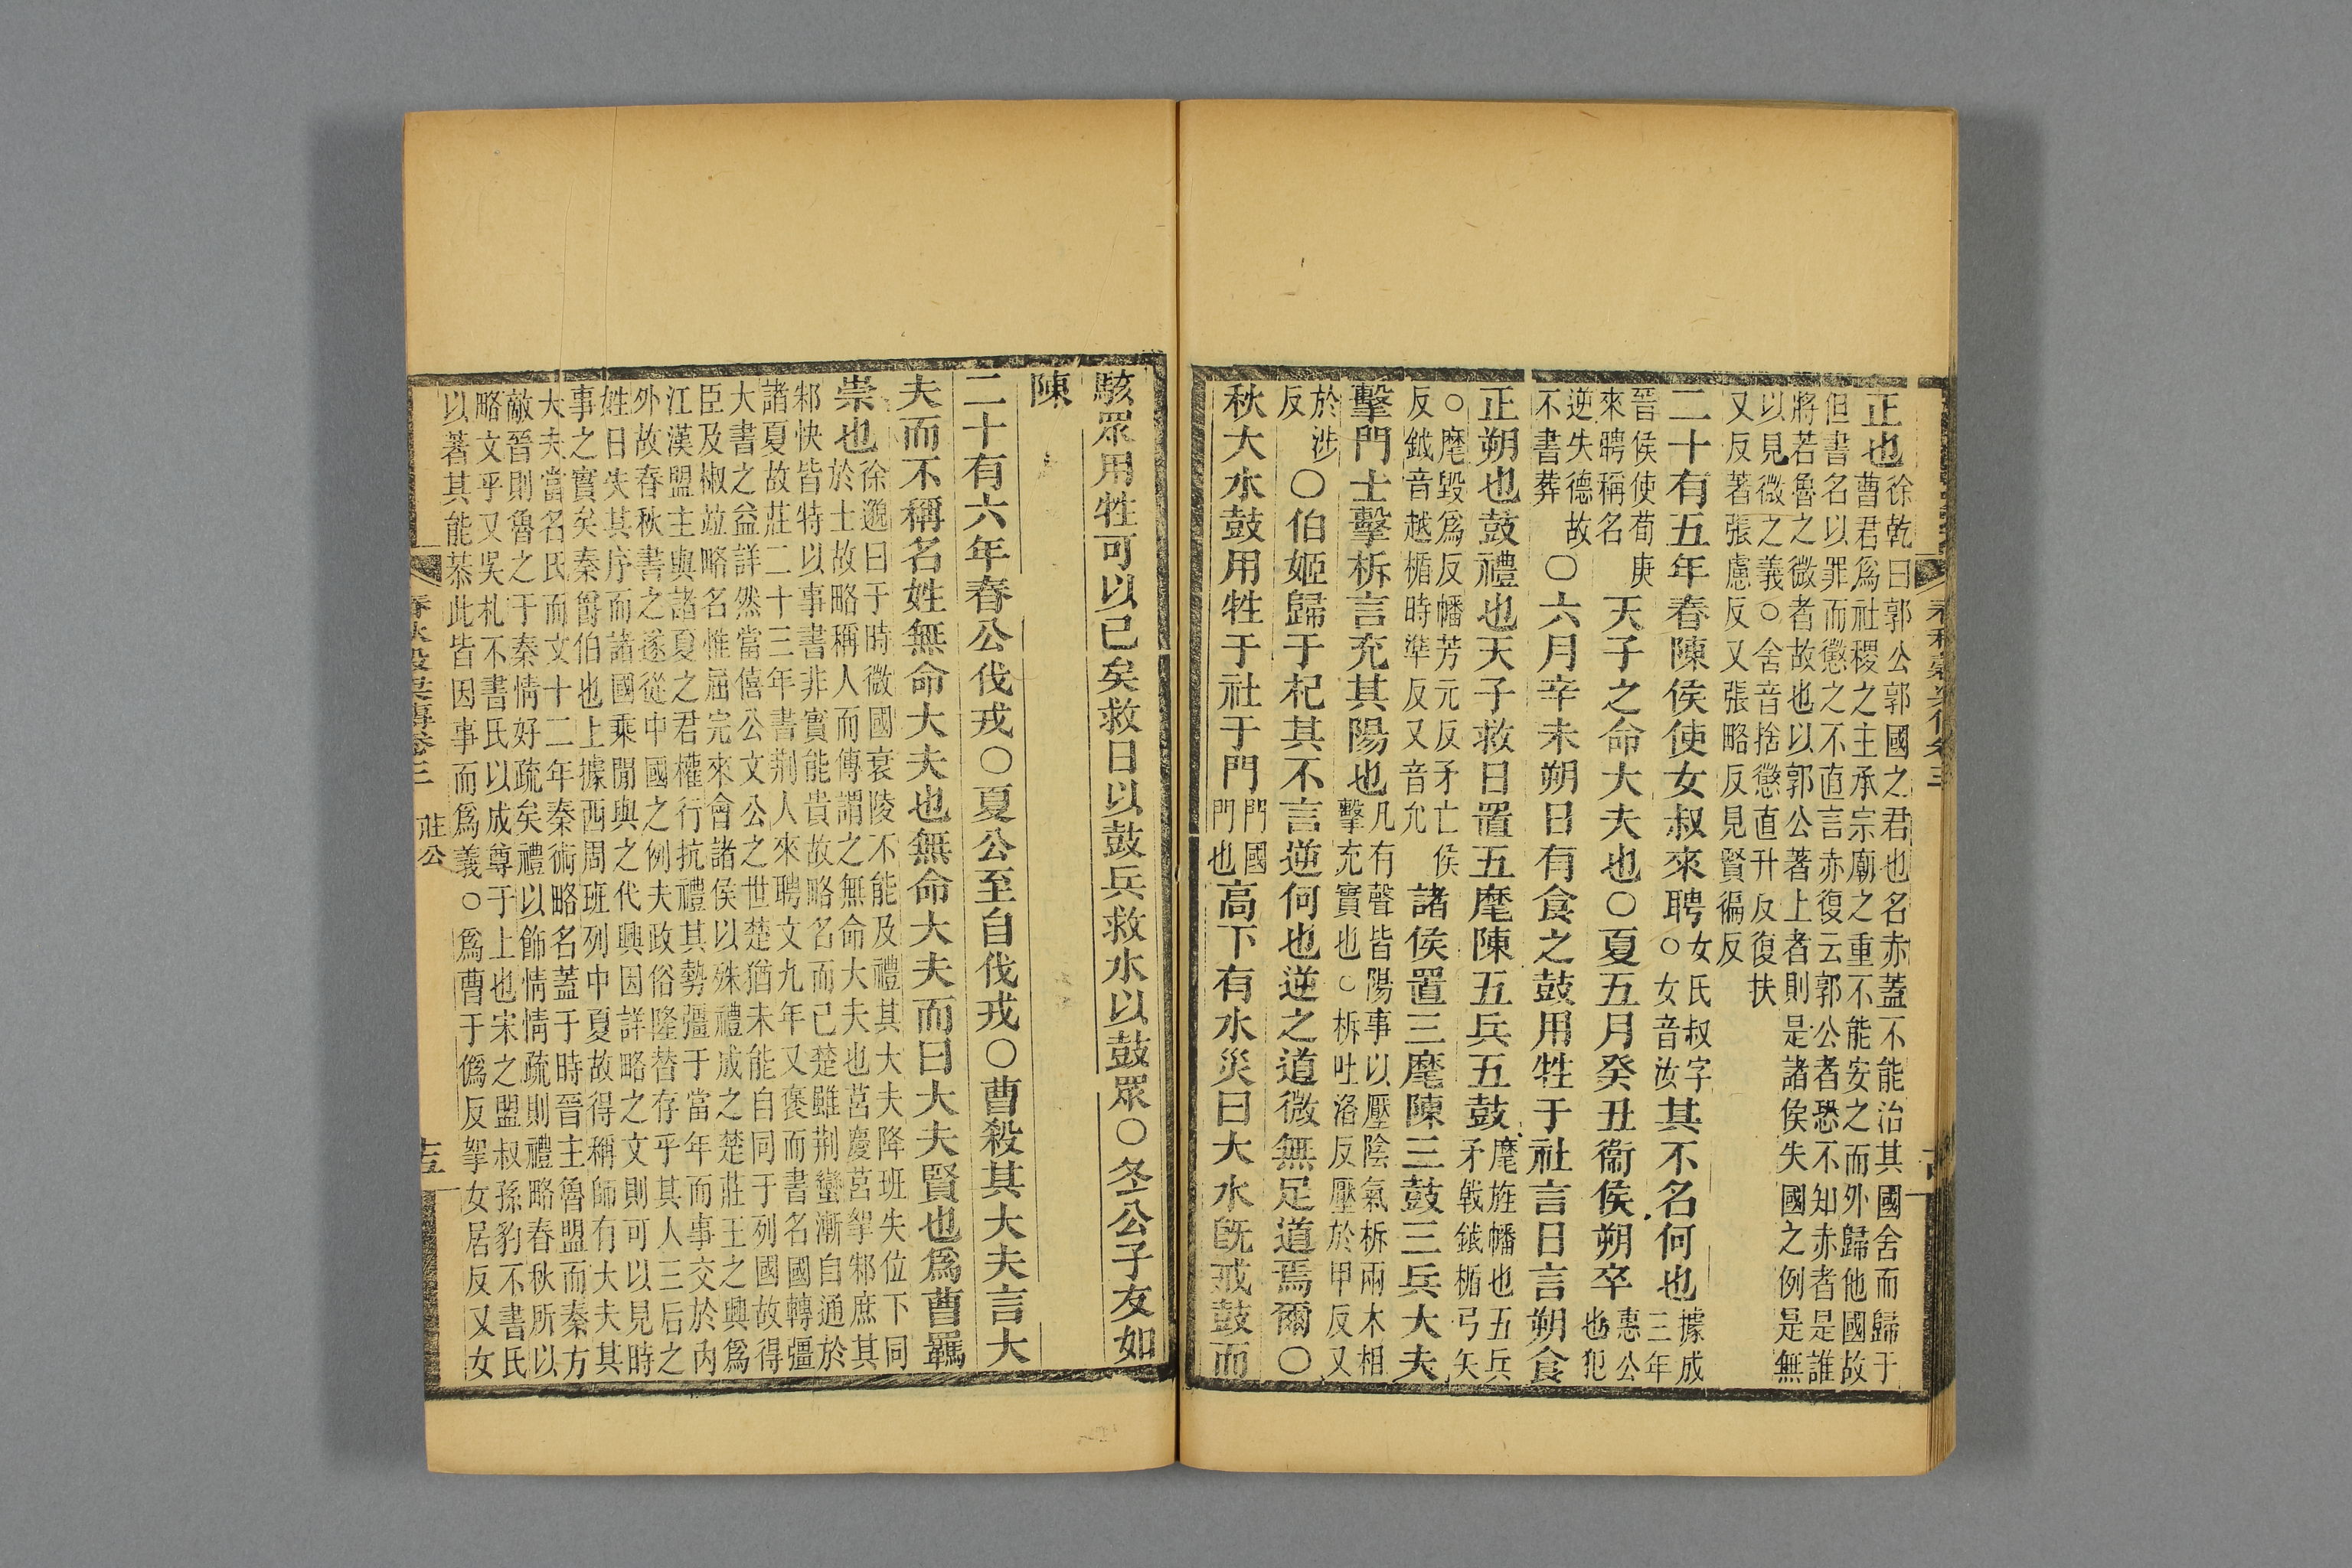 正也徐乾曰郭公郭國之君也名赤蓋不能治其國舍而歸于
曹君爲社稷之主承宗廟之重不能安之而外歸他國故
但書名以罪而懲之不直言赤復云郭公者恐不知赤者是誰
將若魯之微者故也以郭公著上者則是諸侯失國之例是無
以見微之義○舍音捨懲直升反復扶
又反著張慮反又張略反見賢徧反
二十有五年春陳侯使女叔來聘女氏叔字○女音汝其不名何也據成三年
晉侯使荀庚來聘稱名天子之命大夫也○夏五月癸丑衞侯朔卒惠公也犯
逆失德故不書葬○六月辛未朔日有食之鼓用牲于社言日言朔食
正朔也鼓禮也天子救日置五麾陳五兵五鼓麾旌幡也五兵矛戟鉞楯弓矢
○麾毀爲反幡芳元反矛亡侯反鉞音越楯時準反又音允諸侯置三麾陳三鼓三兵大夫
擊門士擊柝言充其陽也凡有聲皆陽事以壓陰氣柝兩木相擊充實也○柝吐洛反壓於甲反又
於涉反○伯姬歸于杞其不言逆何也逆之道微無足道焉爾○
秋大水鼓用牲于社于門門國門也高下有水災曰大水旣戒鼓而
駭眾用牲可以已矣救日以鼓兵救水以鼓眾○冬公子友如
陳
二十有六年春公伐戎○夏公至自伐戎○曹殺其大夫言大
夫而不稱名姓無命大夫也無命大夫而曰大夫賢也爲曹羈
崇也徐邈曰于時微國衰陵不能及禮其大夫降班失位下同
於士故略稱人而傳謂之無命大夫也莒慶莒挐邾庶其
邾快皆特以事書非實能貴故略名而已楚雖荆蠻漸自通於
諸夏故莊二十三年書荆人來聘文九年又褒而書名國轉彊
大書之益詳然當僖公文公之世楚猶未能自同于列國故得
臣及椒竝略名惟屈完來會諸侯以殊禮成之楚莊王之興爲
江漢盟主與諸夏之君權行抗禮其勢彊于當年而事交於內
外故春秋書之遂從中國之例夫政俗隆替存乎其人三后之
姓日失其序而諸國乘閒與之代興因詳略之文則可以見時
事之實矣秦爵伯也上據西周班列中夏故得稱師有大夫其
大夫當名氏而文十二年秦術略名蓋于時晉主魯盟而秦方
敵晉則魯之于秦情好疏矣禮以飾情情疏則禮略春秋所以
略文乎又吳札不書氏以成尊于上也宋之盟叔孫豹不書氏
以著其能恭此皆因事而爲義○爲曹于僞反挐女居反又女
春秋穀梁傳卷三 莊公